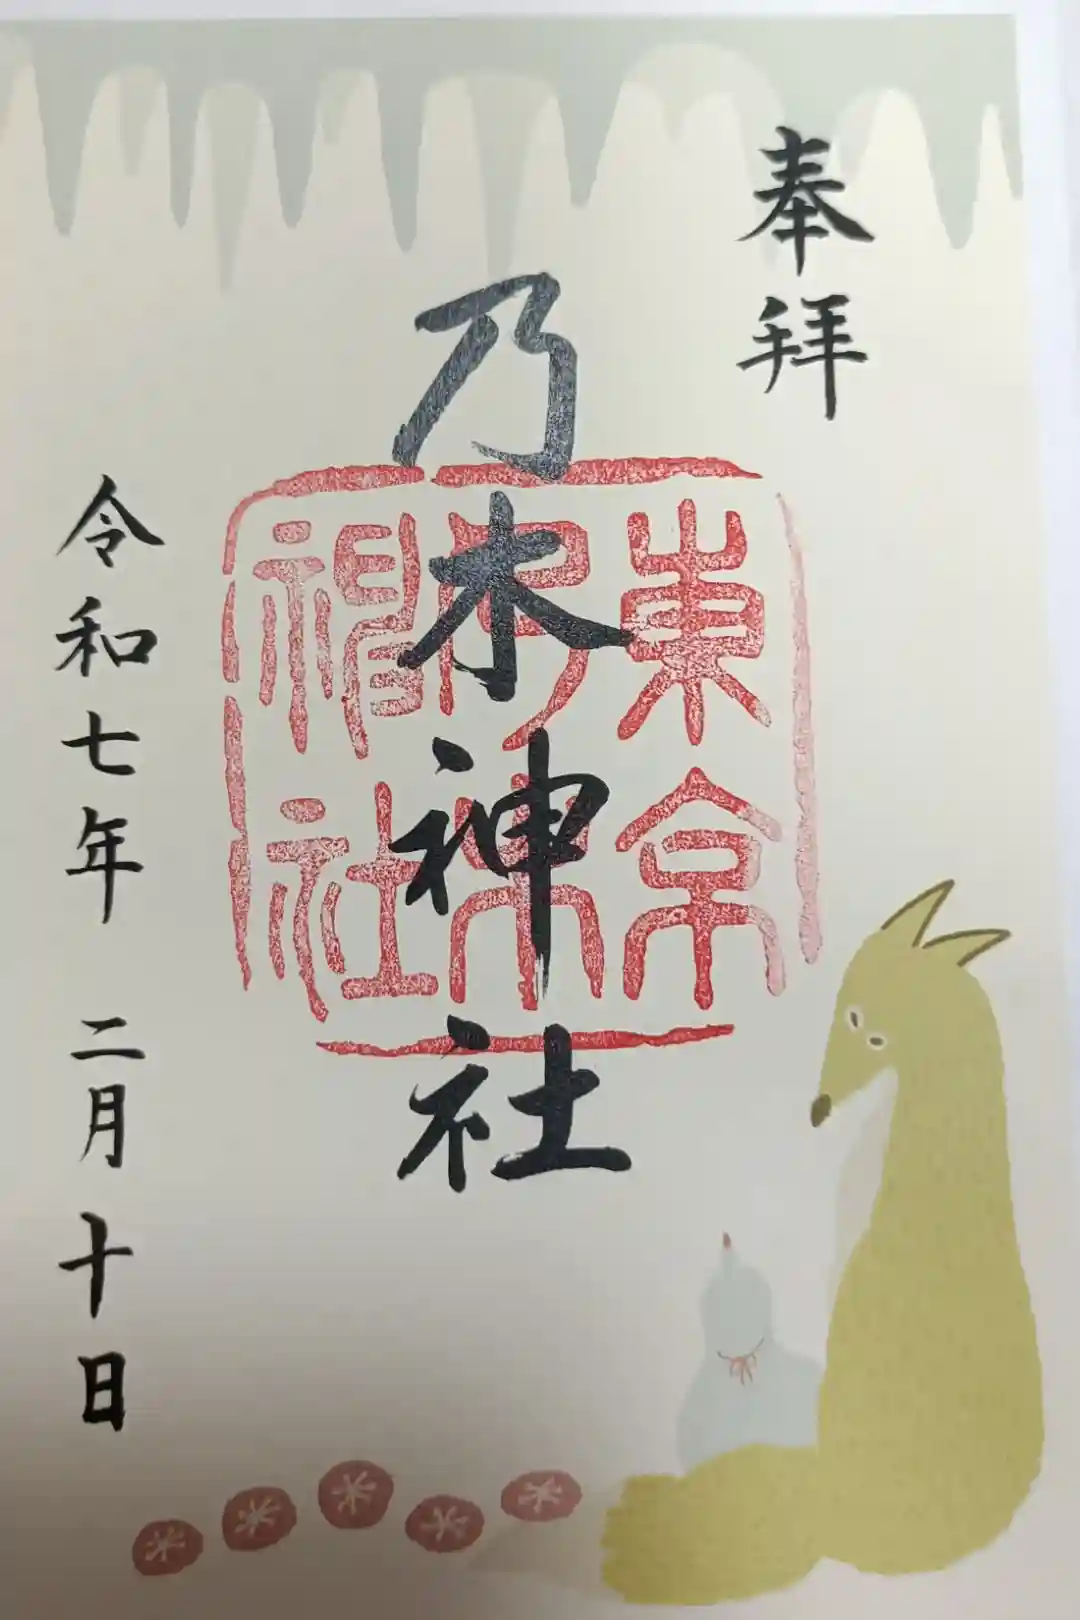 奉拝
乃木神社
東京
乃木
神社
令和七年 二月 十日